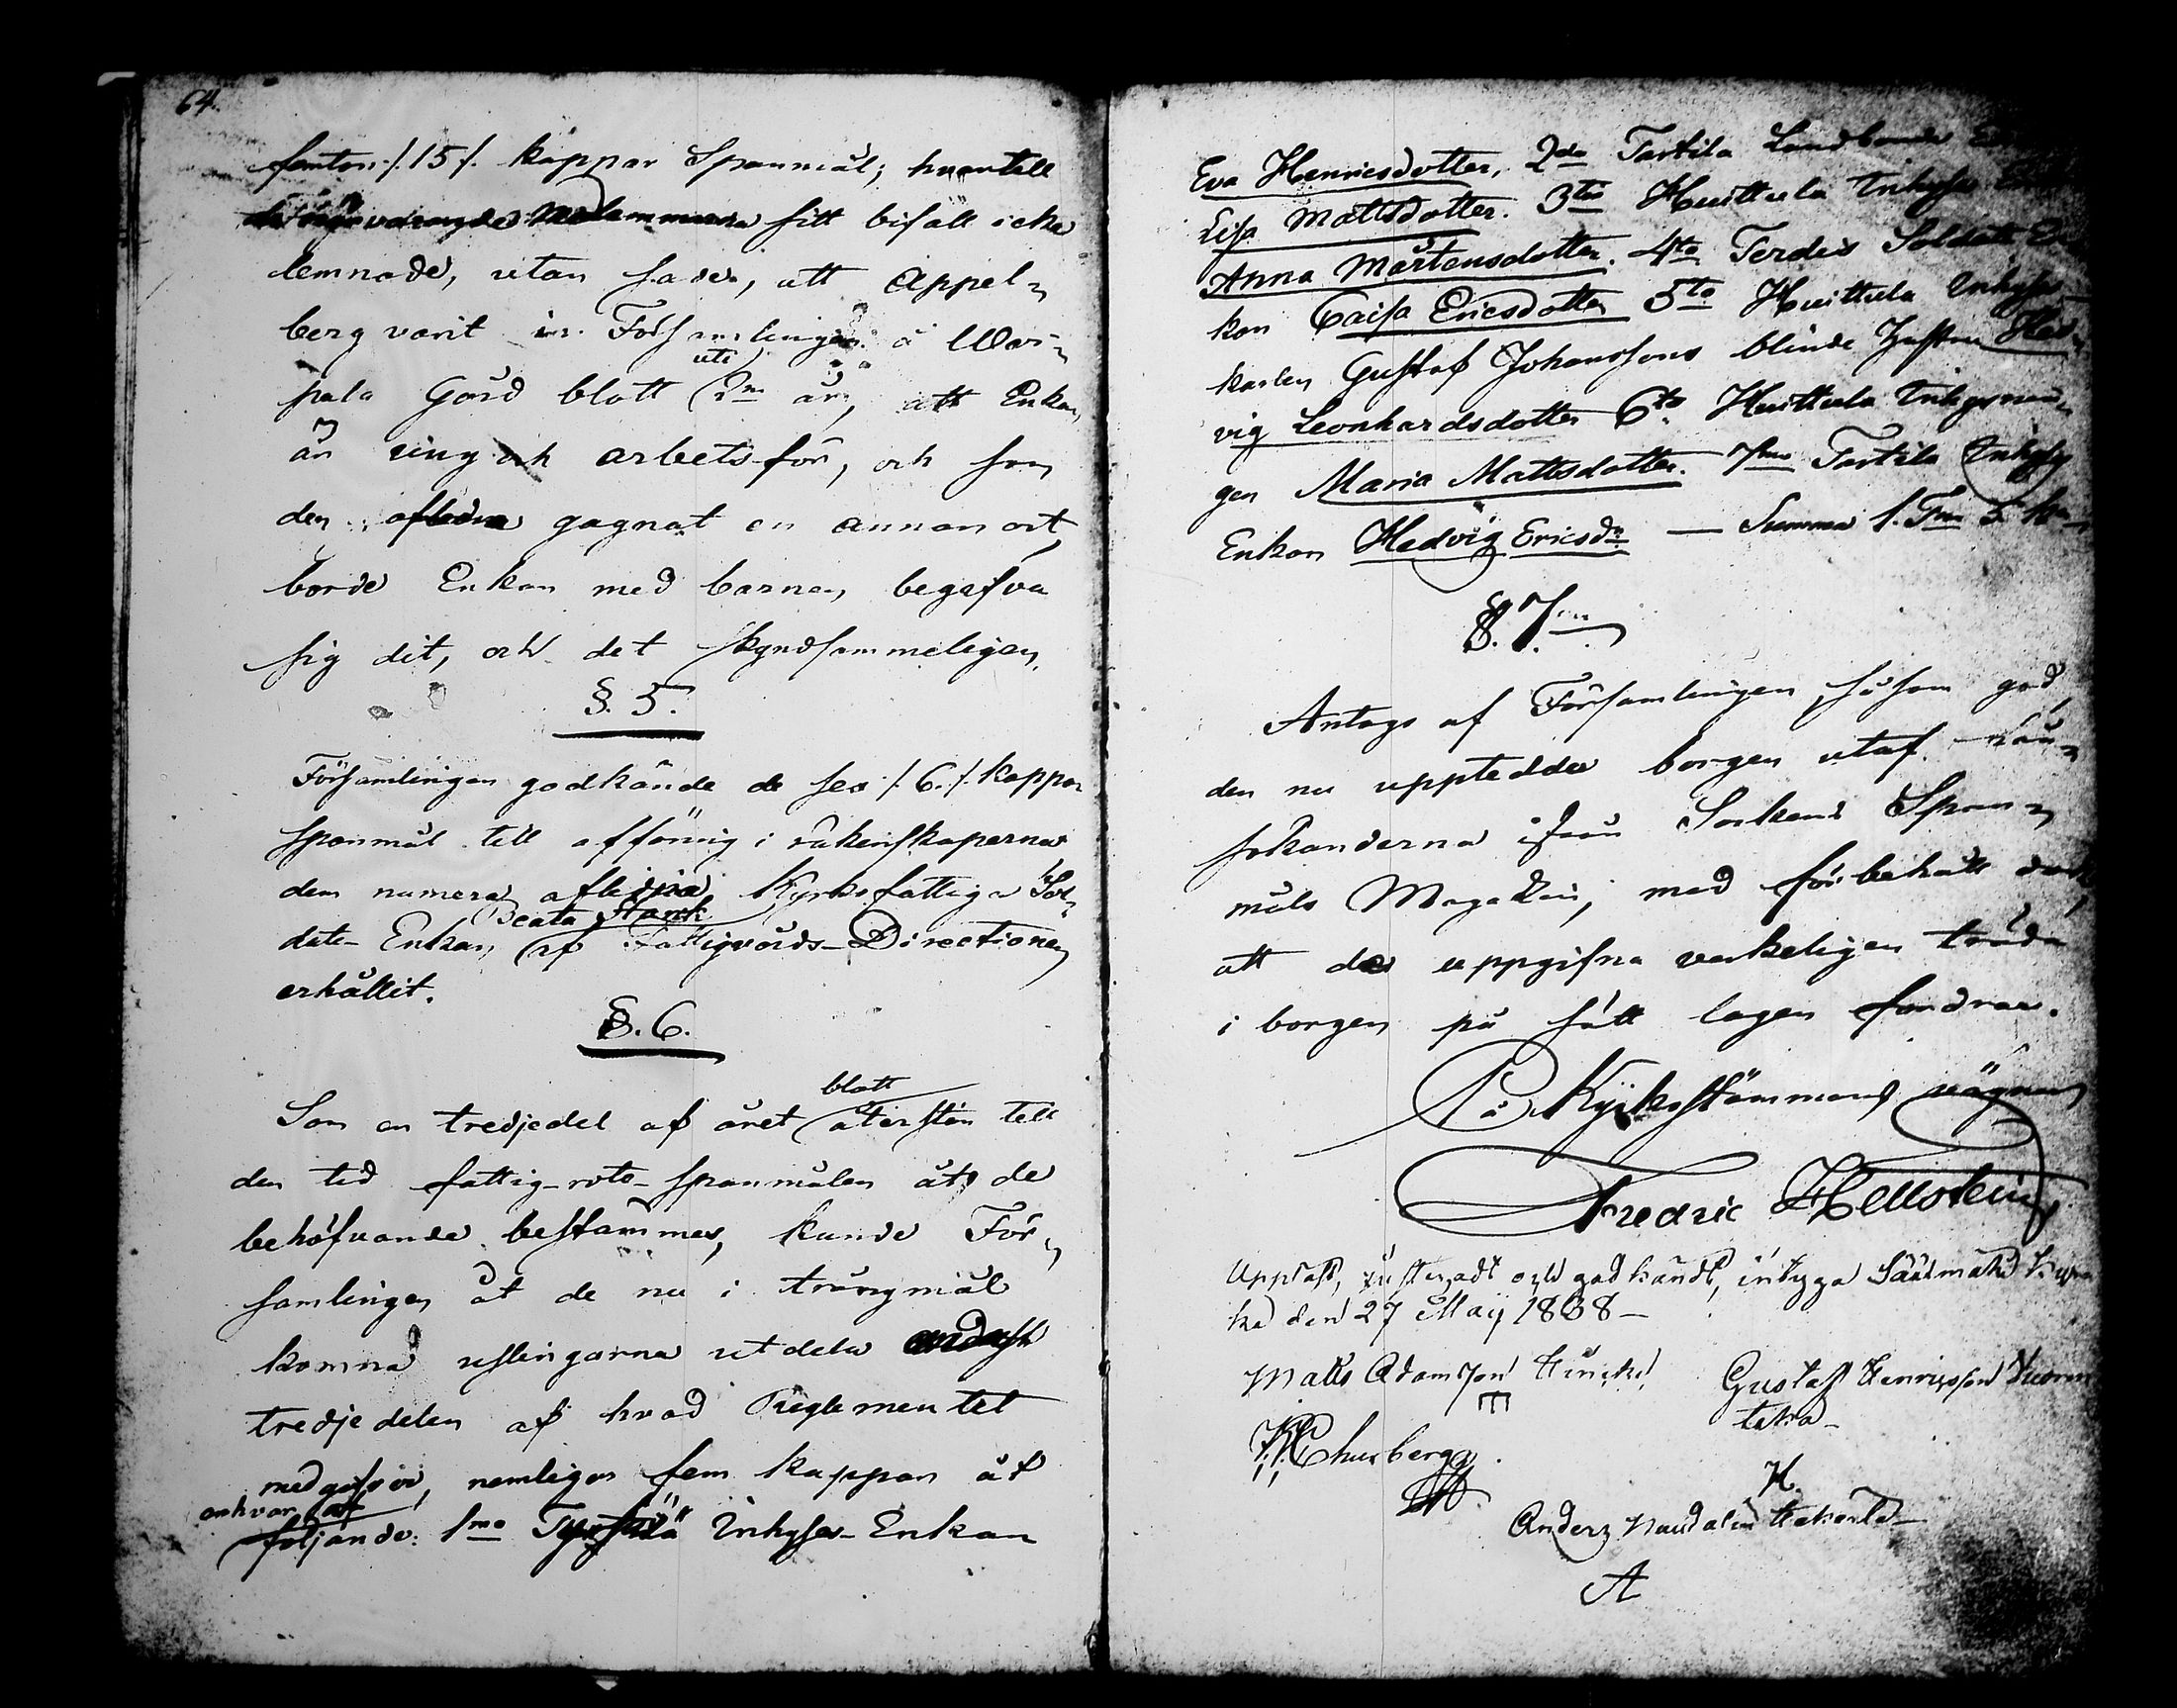 64.
femton /. 15 /. kappar Spanmål; hvartill
sitt bifall icke
lemnade, utan sade, att Appel=
berg varit in Församlingen å War=
uti
pala Gård blott 2ne år, att Enkan
är ung och arbetsför, och som
den aflidne gagnat en annan ort,
borde Enkan med barnen begifva
sig dit, och det skyndsammeligen.
§. 5.
Församlingen godkände de sex /. 6. /. kappar
spanmål till afföring i räkenskaperna
den numera aflidna Kyrkofattiga Sol=
Beata Stark
dats-Enkan af Fattigvårds-Directionen
erhållit.
§. 6.
blott
Som en tredjedel af året återstår till
den tid fattig-rote-spanmålen åt de
behöfvande bestämmes, kunde För=
samlingen åt de nu i trångmål
komna uslingarna utdela endast
tredjedelen af hvad Reglementet
medgifver, nemligen fem kappar åt
enhvar af
följande: 1mo Inhyses-Enkan
Eva Henricsdotter, 2do Tartila Landbonde
Lisa Mattsdotter. 3tio Huittula Inhyses
Anna Mårtensdotter. 4to Terdis Soldats En
kan Caisa Ericsdotter 5to Huittula Inhyses
karlen Gustaf Johanssons blinde hustru Hed=
vig Leonhardsdotter 6to Huittula Inhysnin=
gen Maria Mattsdotter. 7mo Tartila Inhys
Enkan Hedvig Ericsdr — Summa 1. Tna 5. ka
§. 7mo
Antogs af Församlingen såsom god,
den nu uppteddes borgen utaf lån=
sökanderna ifrån Sockens Span=
måls Magazin, med förbehåll dock,
att de uppgifna verkeligen träda
i borgen på sätt lagen fordrar.
På Kyrkostämmans vägnar
Fredric Hellstein
Uppläst, justeradt och godkändt, intyga Säãxmäki Kyr
ka den 27 Maij 1838 —
Matts Adamsson
Gustaf Henricsson
H